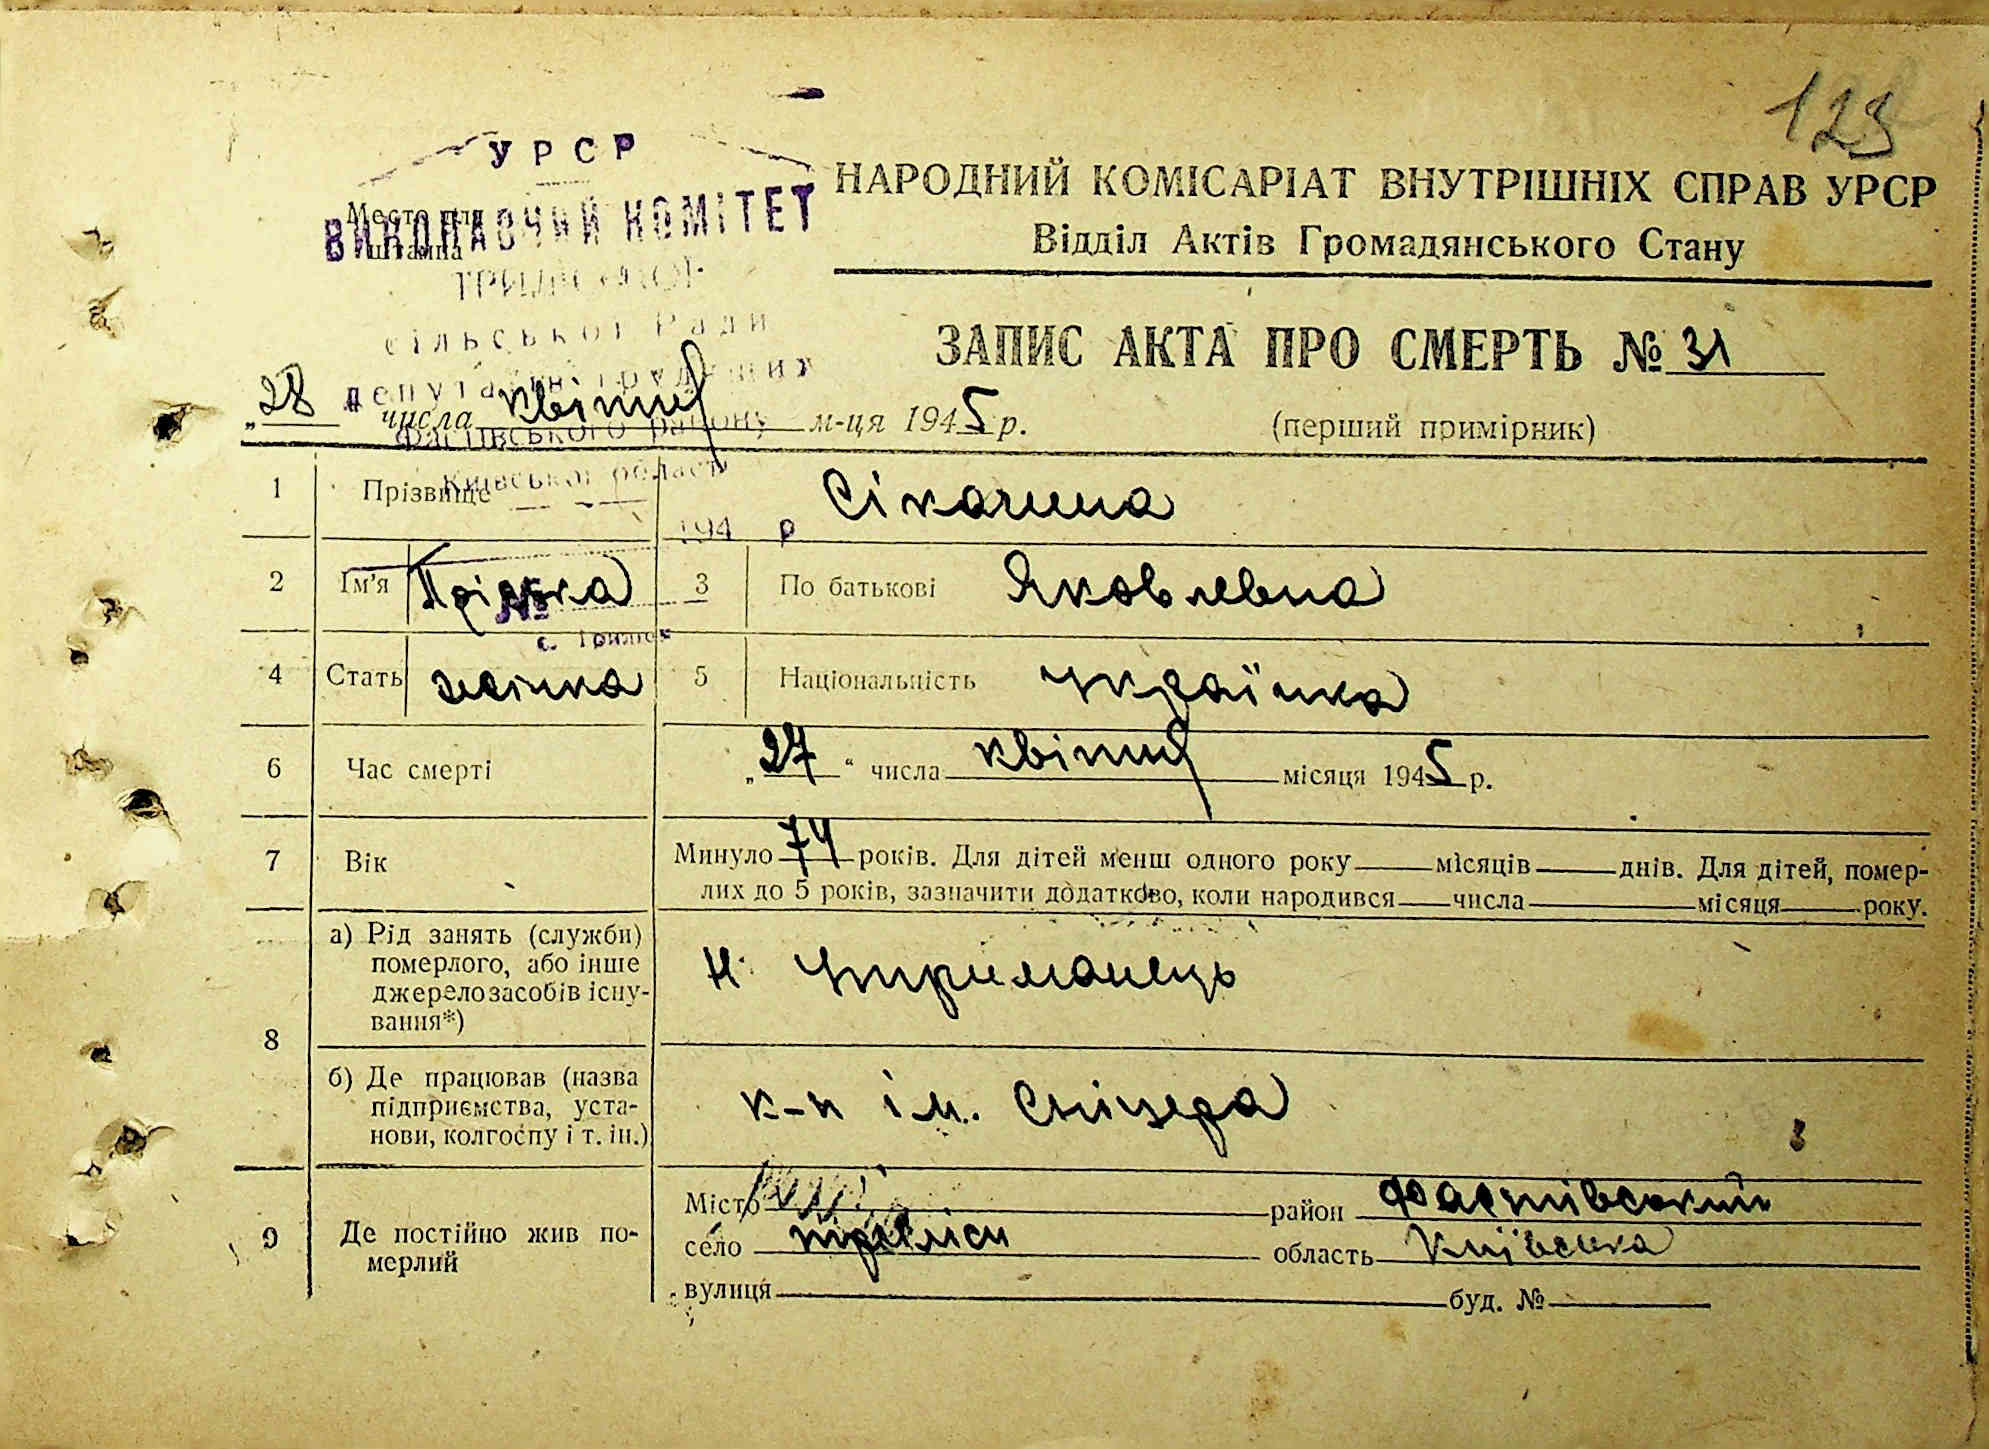 123
УРСР
ВИКОНАВЧИЙ КОМІТЕТ
сільської Ради
депутатів трудящих
Фастівського району
Київської області
194 р
№
с. Триліси
Место для
штампа
НАРОДНИЙ КОМІСАРІАТ ВНУТРІШНІХ СПРАВ УРСР
Відділ Актів Громадянського Стану
ЗАПИС АКТА ПРО СМЕРТЬ № 31
„28" числа квітня м-ця 1945 р.
(перший примірник)
1 Прізвище
2 Ім'я 3 По батькові Яковлевна
4 Стать жінка 5 Національність українка
6 Час смерті „27" числа квітня місяця 1945 р.
7 Вік Минуло 74 років. Для дітей менш одного року місяців днів. Для дітей, помер-
лих до 5 років, зазначити додатково, коли народився числа місяця року.
8 а) Рід занять (служби)
померлого, або інше
джерело засобів існу-
вання*)
н. утриманець
б) Де працював (назва
підприємства, уста-
нови, колгоспу і т. ін.)
к-п ім.
9 Де постійно жив по-
мерлий
Місто район Фастівський
село триліси область Київська
вулиця буд. №